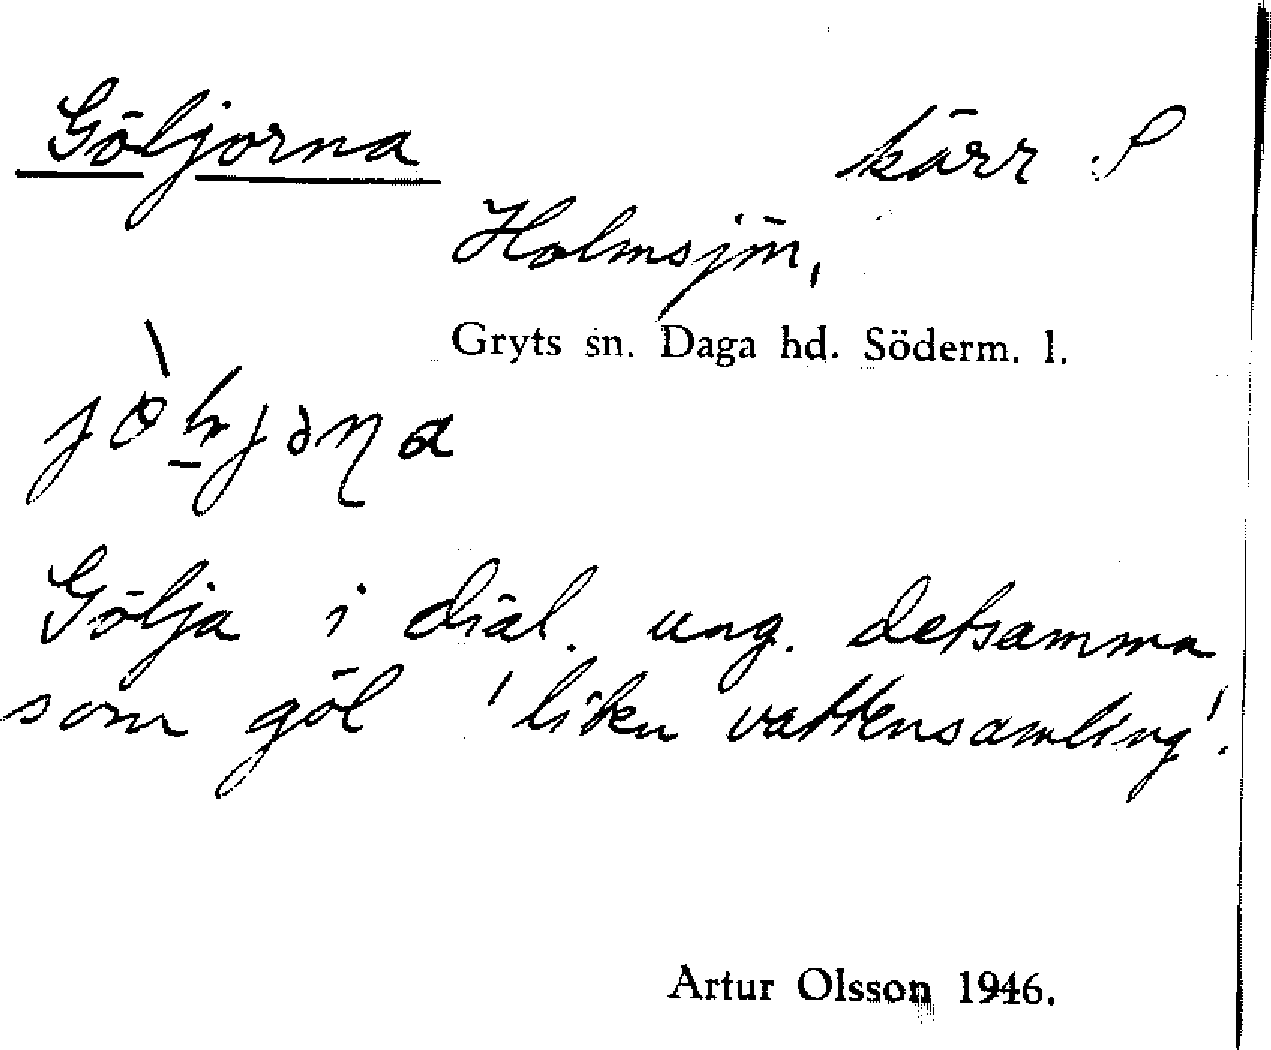 Göljorna kärr S
Holmsjön,
Gryts sn. Daga hd. Söderm. l.
Gölja i dial. ung. detsamma
som göl 'liten vattensamling'.
Artur Olsson 1946.